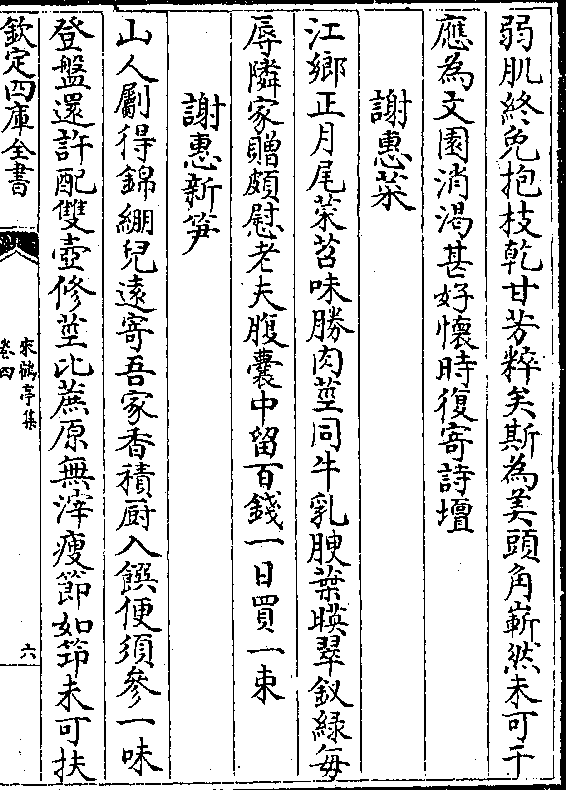 弱肌終免抱枝乾甘芳粹矣斯為美頭角嶄然未可干
應為文園消渴甚好懷時復寄詩壇
謝惠菜
江鄉正月尾菜苔味勝肉莖同牛乳腴葉暎翠釵綠每
辱隣家贈頗慰老夫腹囊中留百錢一日買一束
謝惠新笋
山人劚得錦綳兒遠寄吾家香積厨入饌便須參一味
登盤還許配雙壺修莖比蔗原無滓瘦節如筇未可扶
欽定四庫全書
來鶴亭集
卷四
六